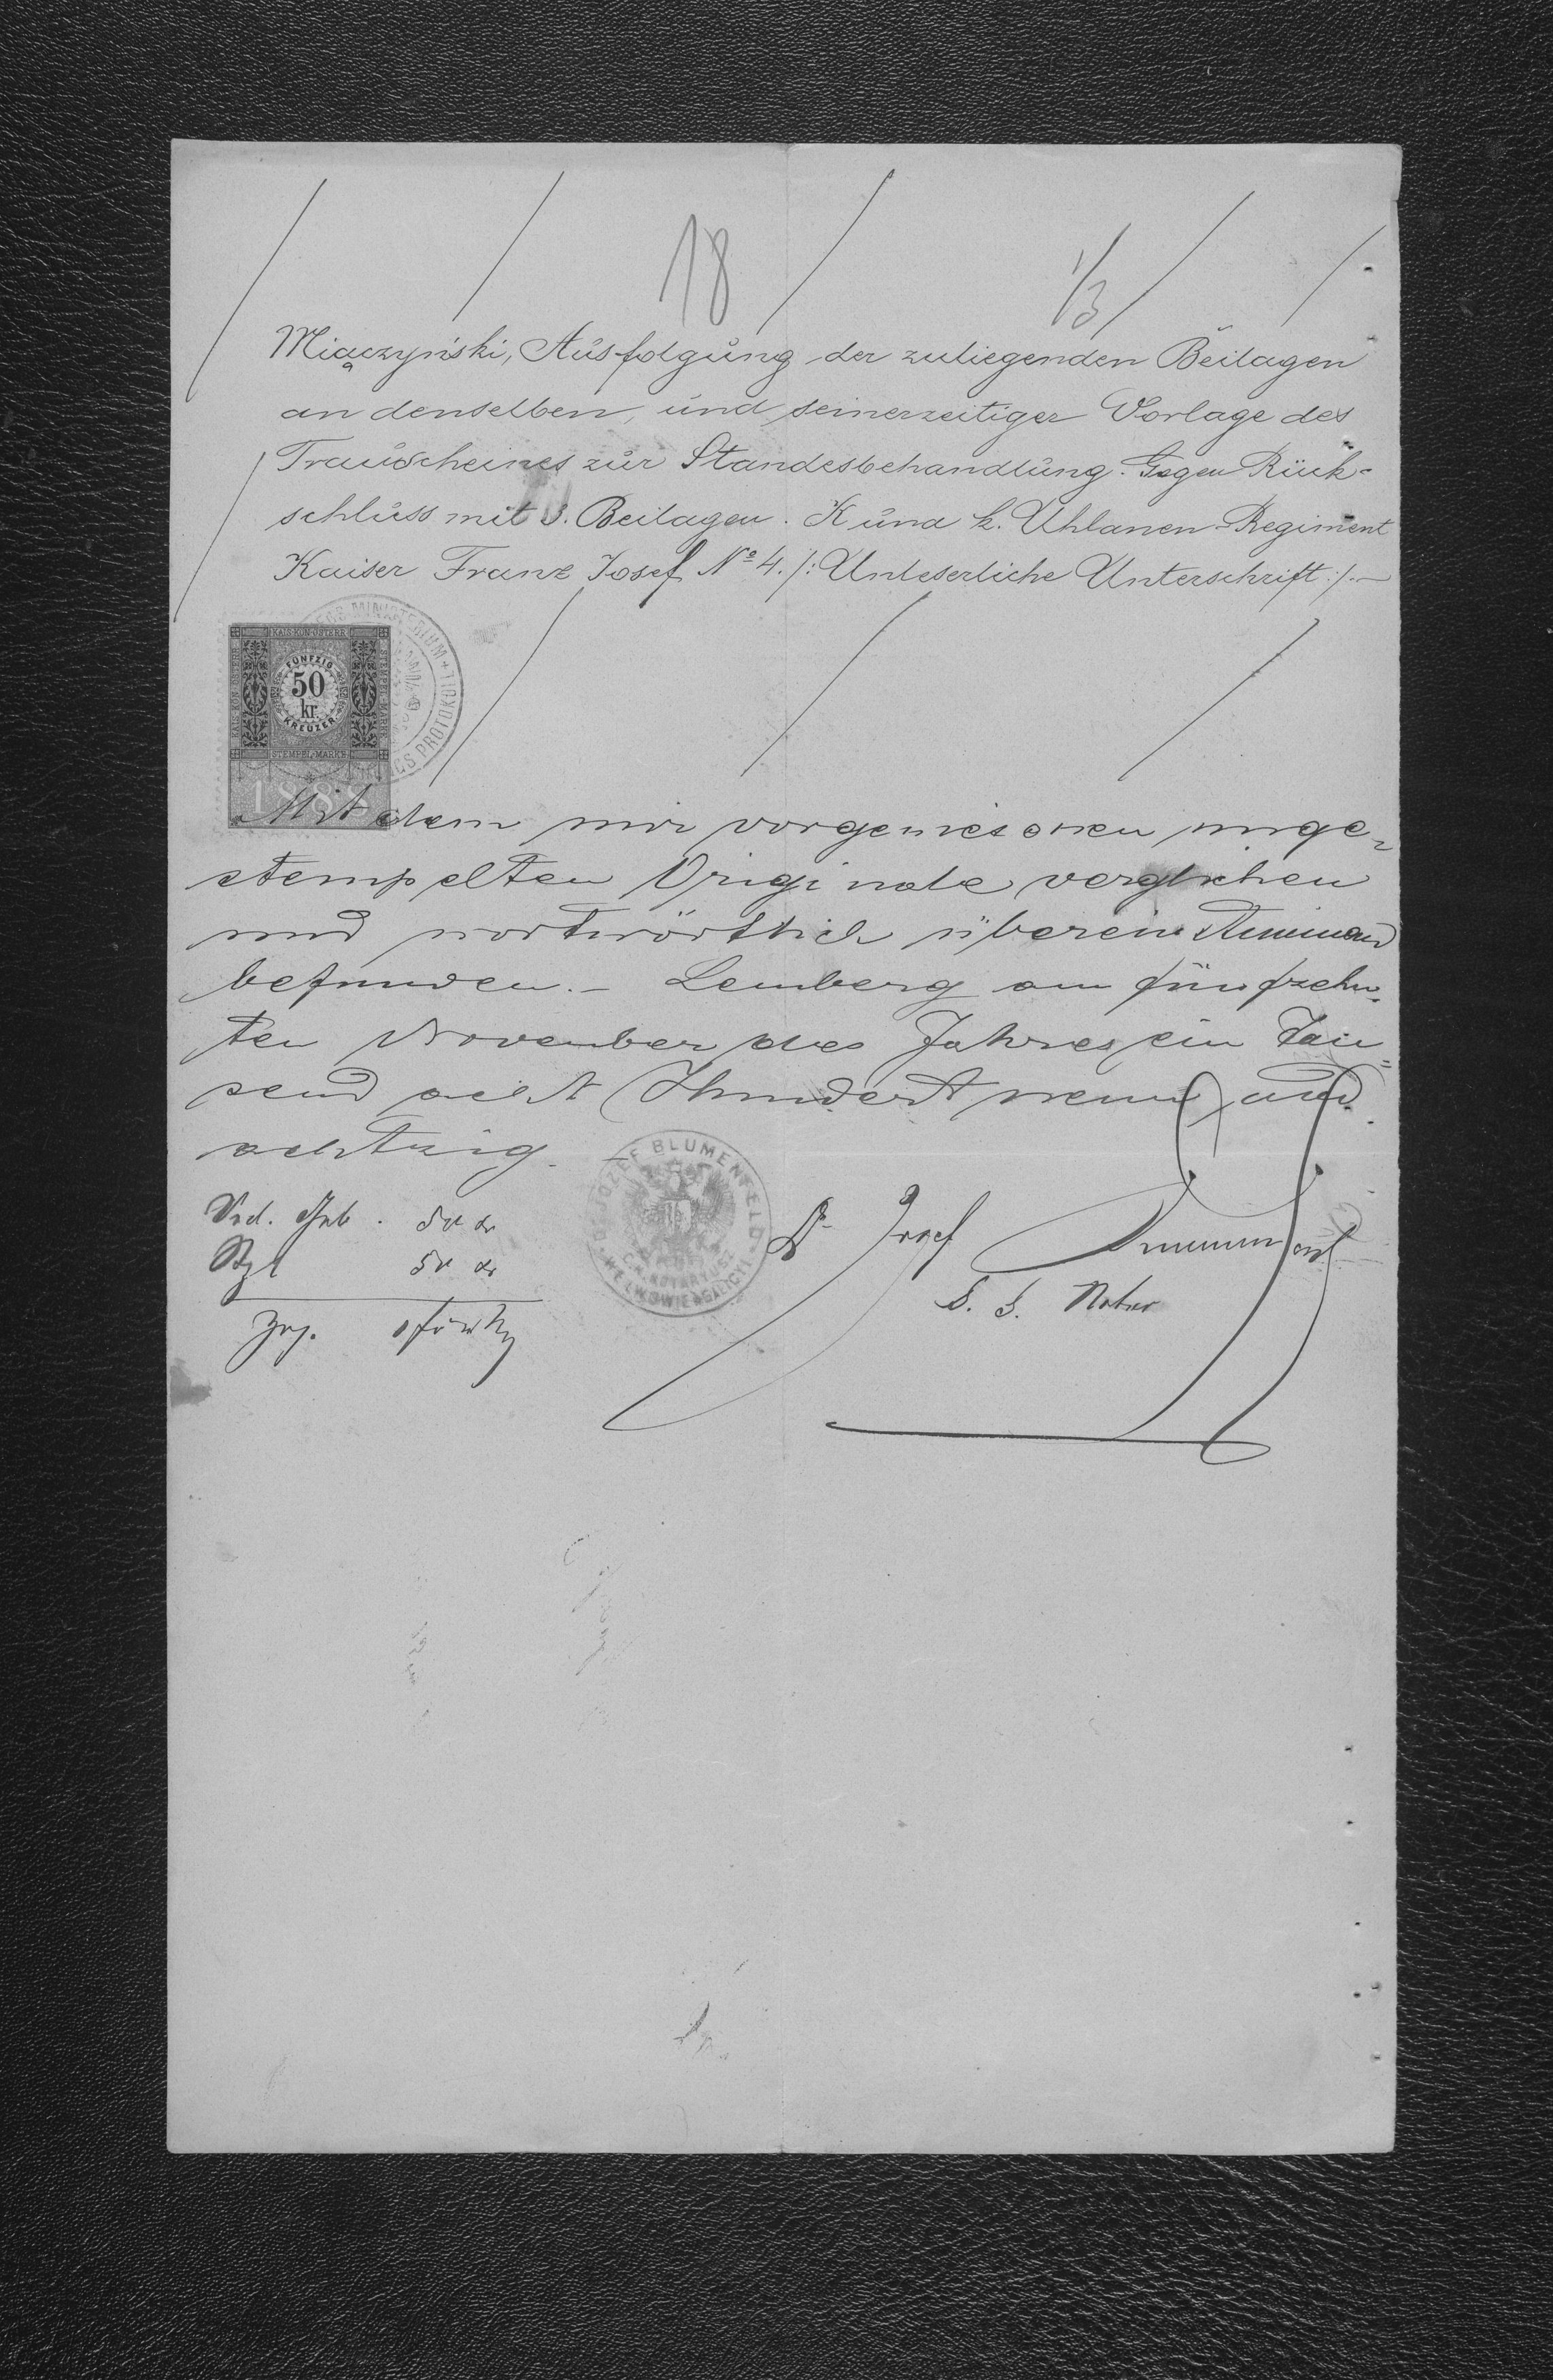 18
1/3
Miączyński, Ausfolgung der zuliegenden Beilagen
an denselben, und seinerzeitiger Vorlage des
Trauscheines zur Standesbehandlung. Gegen Rück-
schluss mit 3. Beilagen. K und k. Uhlanen-Regiment
Kaiser Franz Josef Nº 4. /: Unleserliche Unterschrift :/.—
KAIS.KÖN.ÖSTERR.
STEMPEL-MARKE
FÜNFZIG
50
kr.
KREUZER
STEMPEL-MARKE
1888
MINISTERIUM
PROTOKOLL
Mit dem mir vorgewiesenen unge-
stempelten Originale verglichen
und wortwörtlich übereinstimmend
befunden.- Lemberg am fünfzehn-
ten November des Jahres ein Tau-
send acht Hundert neun und
achtzig.
Dr. JÓZEF BLUMENFELD
C.K. NOTARYUSZ
WE LWOWIE GALICYI
Dr Josef
Notar